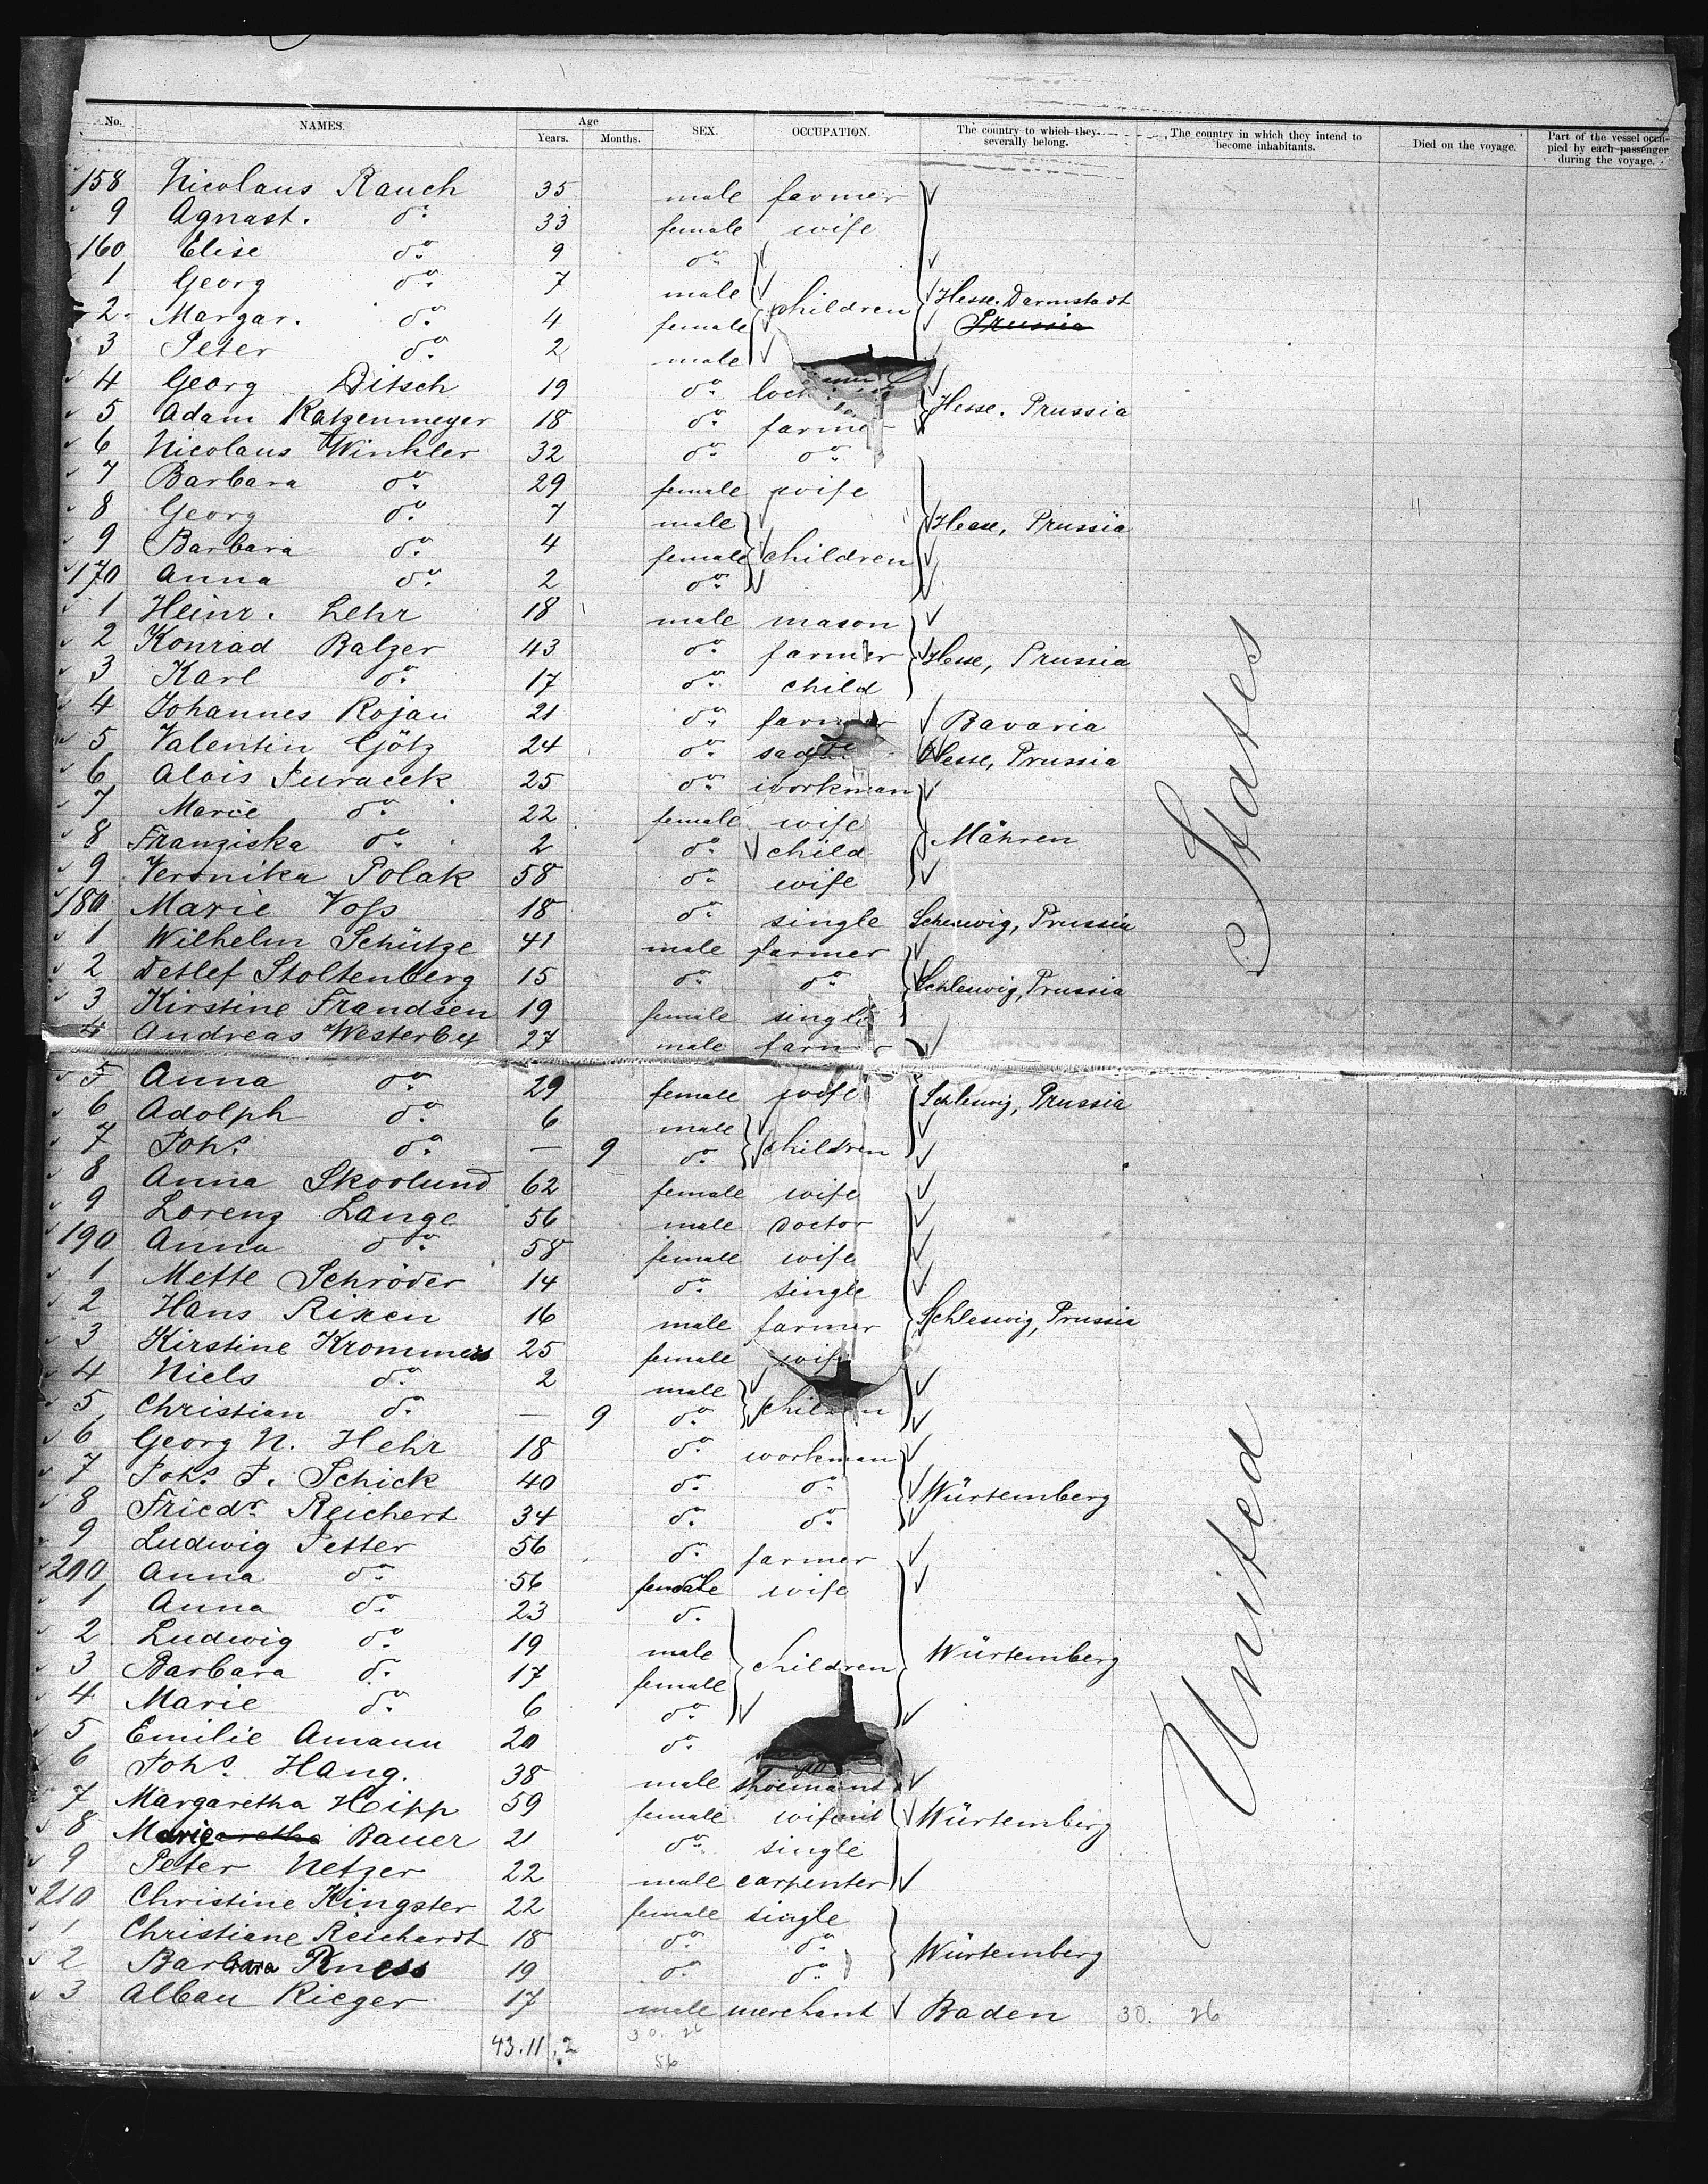 No. NAMES. Age Years. Months. SEX. OCCUPATION. The country to which they severally belong. The country in which they intend to become inhabitants. Died on the voyage. Part of the vessel occupied by each passenger during the voyage.
158 Nicolaus Rauch 35 male farmer
9 Agnast. do. 33 female wife
160 Elise do. 9 do.
1 Georg do. 7 male children Hesse. Darmstadt
2 Margar. do. 4 female Prussia
3 Peter do. 2 male
4 Georg Ditsch 19 do.
5 Adam Katzenmeyer 18 do. farmer Hesse. Prussia
6 Nicolaus Winkler 32 do. do.
7 Barbara do. 29 female wife
8 Georg do. 7 male Hesse, Prussia
9 Barbara do. 4 female children
170 Anna do. 2 do.
1 Heinr. Lehr 18 male mason
2 Konrad Balzer 43 do. farmer Hesse, Prussia
3 Karl do. 17 do. child
4 Johannes Rojan 21 do. farmer Bavaria
5 Valentin Götz 24 do. Hesse, Prussia
6 Alois Juracek 25 do. workman
7 Marie do. 22 female wife
8 Franziska do. 2 do. child Mähren
9 Veronika Polak 58 do. wife
180 Marie Voss 18 do. single Schleswig, Prussia
1 Wilhelm Schütze 41 male farmer
2 Detlef Stoltenberg 15 do. do. Schleswig, Prussia
3 Kirstine Frandsen 19 female single
4 Andreas Westerbey 27 male farmer
5 Anna do. 29 female wife Schleswig, Prussia
6 Adolph do. 6 male
7 Johs. do. — 9 do. children
8 Anna Skovlund 62 female wife
9 Lorenz Lange 56 male doctor
190 Anna do. 58 female wife
1 Mette Schröder 14 do. single
2 Hans Rixen 16 male farmer Schleswig, Prussia
3 Kirstine Krommers 25 female wife
4 Niels do. 2 male
5 Christian do. — 9 do. children
6 Georg N. Hehr 18 do. workman
7 Johs. J. Schick 40 do. do. Würtemberg
8 Friedr. Reichert 34 do. do.
9 Ludwig Petter 56 do. farmer
200 Anna do. 56 female wife
1 Anna do. 23 do.
2 Ludwig do. 19 male children Würtemberg
3 Barbara do. 17 female
4 Marie do. 6 do.
5 Emilie Amann 20 do.
6 Johs. Hang. 38 male
7 Margaretha Hipp 59 female wife Würtemberg
8 Marie Bauer 21 do. single
9 Peter Netzer 22 male carpenter
210 Christine Kingster 22 female single
1 Christiane Reichardt 18 do. do.
2 Barbara Kness 19 do. do. Würtemberg
3 Alban Rieger 17 male merchant Baden 30. 26
43.11.2 30. 26
56
United States